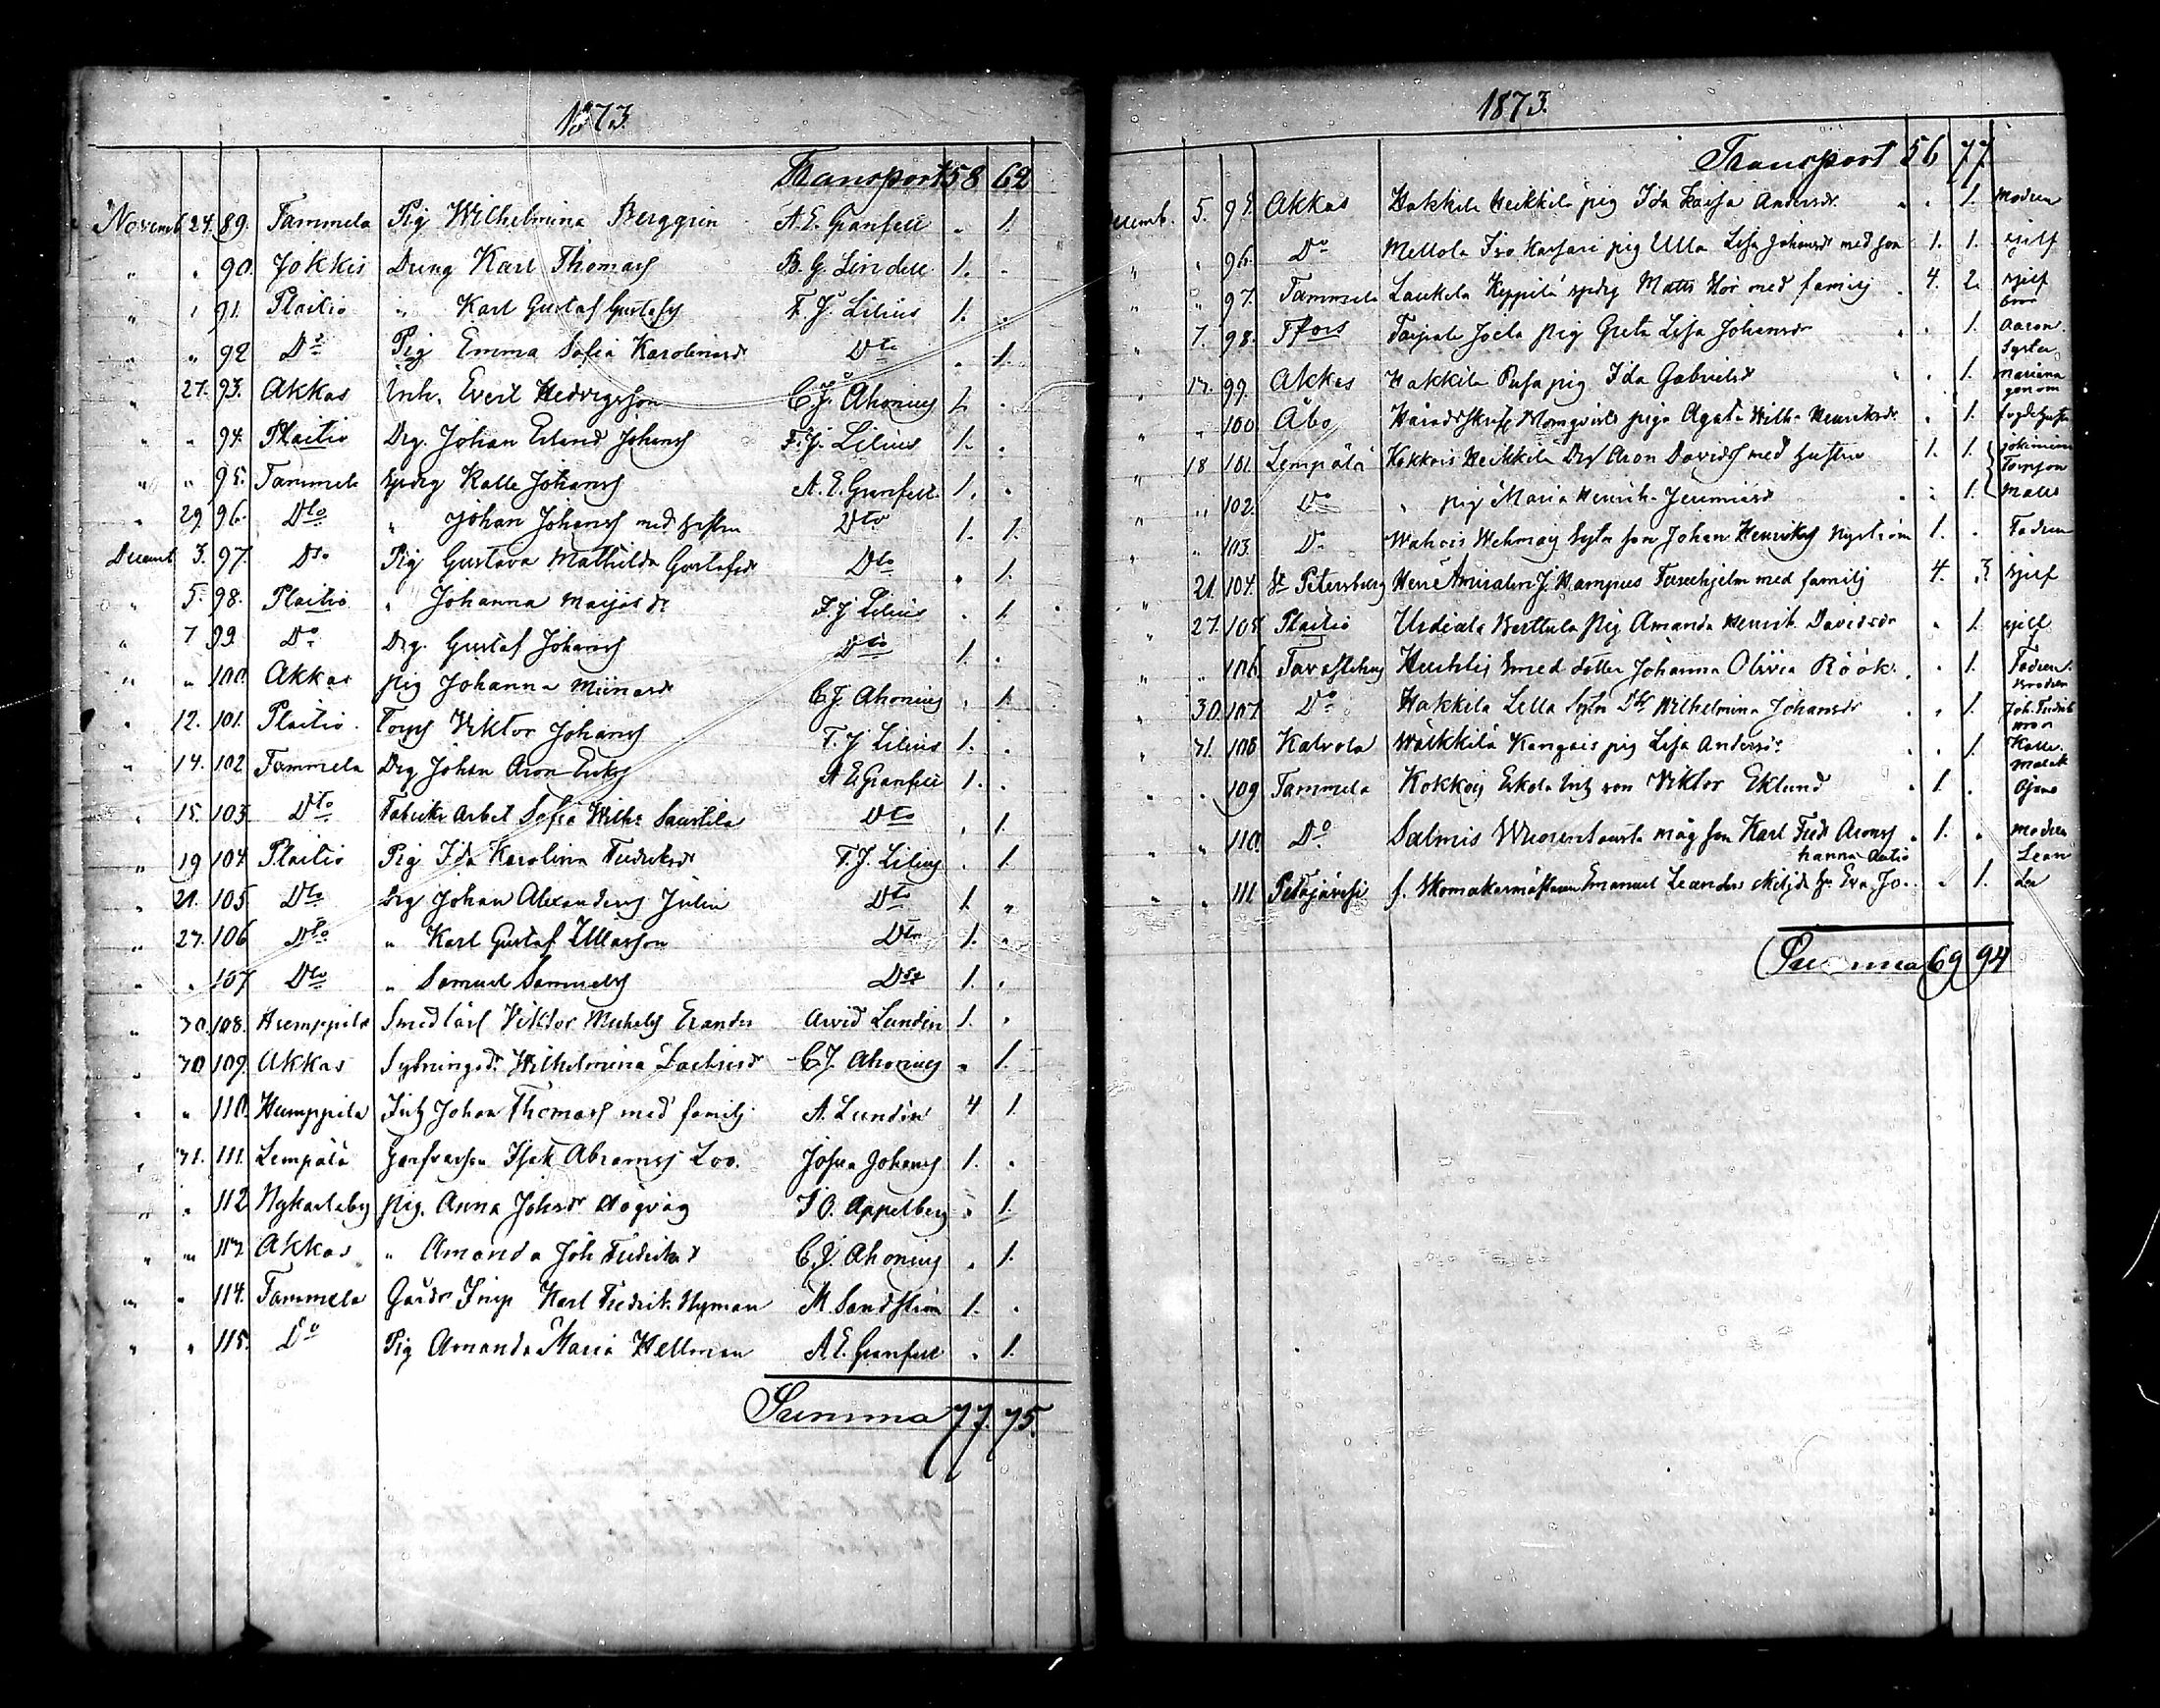 1873.
Transport 58 62
Novemb 24. 89. Tammela Pig Wilhelmina Berggrin A. E. Granfelt „ 1.
„ „ 90. Jokkis Dräng Karl Thomass B. G. Lindell 1. „
„ „ 91. Plaitis „ Karl Gustaf Gustafss F. J. Lilius 1. „
„ „ 92 Do Pig Emma Sofia Karolinasdr Dto „ 1.
„ 27. 93. Akkas Inh. Evert Hedvigsson C. J. Ahonius 1. „
„ „ 94. Plaitis Drg. Johan Erland Johanss F. J. Lilius 1. „
„ „ 95. Tammela Kalle Johanss A. E. Granfelt 1. „
„ 29. 96. Dto „ Johan Johanss med hustru Dto 1. 1.
Decemb 3. 97. Dto Pig Gustava Mathilda Gustafsdr Dto „ 1.
„ 5. 98. Plaitis „ Johanna Maijasdr F. J. Lilius „ 1.
„ 7 99. Do Drg. Gustaf Johanss Dto 1. „
„ „ 100. Akkas pig Johanna Miinasdr C. J. Ahonius „ 1.
„ 12. 101. Plaitis Torps Viktor Johanss F. J. Lilius 1. „
„ 14. 102 Tammela Drg Johan Aron Erikss A. E. Granfelt 1. „
„ 15. 103 Dto Fabriks Arbet Sofia Wilh. Saustila Dto „ 1.
„ 19 104 Plaitis Pig Ida Karolina Fredriksdr F. J. Lilius „ 1.
„ 21. 105 Dto Drg Johan Alexanderss Julin Dto 1. „
„ 27. 106 Dto „ Karl Gustaf Ullasson Dto 1. „
„ „ 107 Dto „ Samuel Samuelss Dto 1. „
„ 30. 108. Humppila Smedlärl Viktor Michelss Erander Arvid Lundin 1. „
„ 30 109. Akkas Wilhelmina C. J. Ahonius „ 1.
„ „ 110. Humppila Inh Johan Thomass med familj A. Lundin 4 1.
„ 31. 111. Lempälä Isak Abramss Loo. Josua Johanss 1. „
„ „ 112 Nykarleby Pig. Anna Johsdr Högväg J. O. Appelberg „ 1.
„ „ 113 Akkas „ Amanda Joh Fredriksdr C. J. Ahonius „ 1.
„ „ 114. Tammela Gårds Insp Karl Fredrik Nyman M Sandström 1. „
„ „ 115. Do Pig Amanda Maria Hellman A. E. Granfelt „ 1.
Summa 77. 75.
1873.
Transport 56 77
Decemb. 5. 95. Akkas Hakkila Heikkila pig Ida Kaisa Andersdr. „ 1. Modren
„ „ 96. Do Mellola Iso Kassari pig Ulla Lisa Johansdr med son 1. 1. sjelf
„ „ 97. Tammela Laukela Matts med familj 4. 2. sjelf
„ 7. 98. Tfors Taipale Jocla pig Greta Lisa Johansdr „ 1. Aaron
Syster
„ 99. Akkas Hakkila pig Ida Gabrielsdr „ 1. Mariana
genom
„ „ 100. Åbo piga Agata Wilh. Henriksdr „ 1.
„ 18 101. Lempälä Kokkois Heikkila Aron Davidss med hustru 1. 1.
„ „ 102. Do „ pig Maria Henrik. Jeremiasdr „ 1. Matts
„ „ 103. Do son Johan Henrikss Nyström 1. „ Fadren
„ 21. 104. St Petersburg Herr Amiralen J. Hampus Furuhjelm med familj 4. 3. sjelf
„ 27. 105. Plaitis Urdiala Kerttula pig Amanda Henrik. Davidsdr „ 1. sjelf
„ „ 106. Tavastehus Huhtis Smed dotter Johanna Olivia Röök. „ 1. Fadren
Brodren
„ 30. 107. Do Hakkila Lella Wilhelmina Johansdr „ 1. Joh. Fredrik
„ 31. 108 Kalvola Wälkkilä Kangais pig Lisa Andersdr „ 1. Kalle
„ „ 109 Tammela Kokkois Eskola Inh son Viktor Eklund 1. „
„ „ 110. Do Salmis måg son Karl Fredr Aronss 1. „ Modren
hanna Antio Lean
„ „ 111. Petäjävesi f. Skomakaremästaren Emanuel Leanders Eva Jo- „ 1. der
Summa 69 94